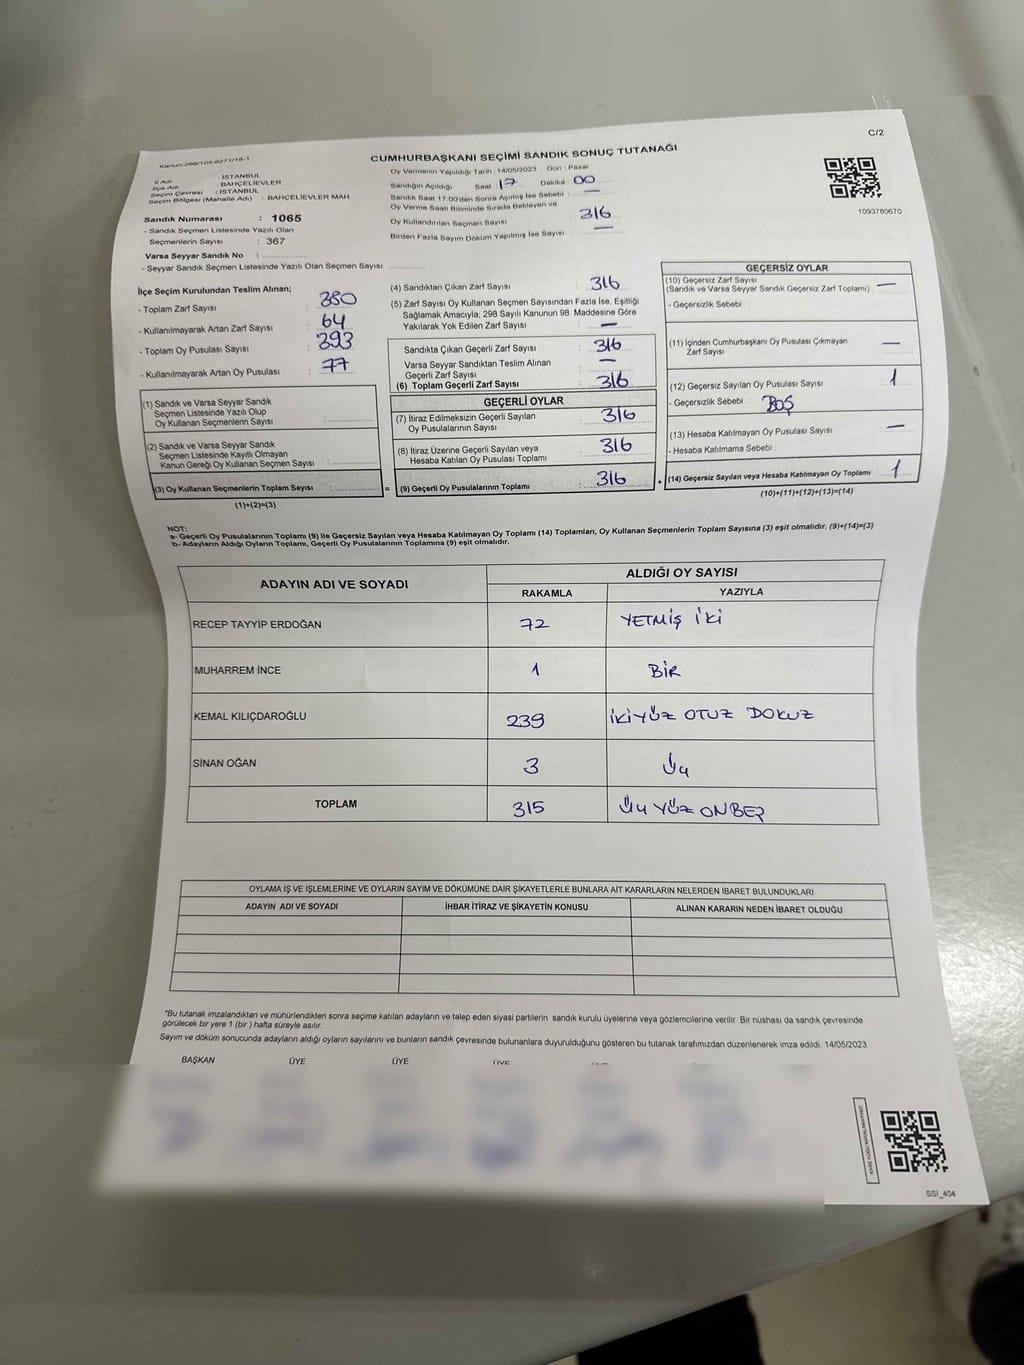 C/2
Kanun:298/105,6271/18-1
CUMHURBAŞKANI SEÇİMİ SANDIK SONUÇ TUTANAĞI
1093780670
İl Adı : İSTANBUL
İlçe Adı : BAHÇELİEVLER
Seçim Çevresi : İSTANBUL
Seçim Bölgesi (Mahalle Adı) : BAHÇELİEVLER MAH.
Sandık Numarası : 1065
- Sandık Seçmen Listesinde Yazılı Olan
Seçmenlerin Sayısı : 367
Varsa Seyyar Sandık No :
- Seyyar Sandık Seçmen Listesinde Yazılı Olan Seçmen Sayısı:
Oy Vermenin Yapıldığı Tarih : 14/05/2023 Gün : Pazar
Sandığın Açıldığı Saat 17 Dakika : 00
Sandık Saat 17:00'den Sonra Açılmış İse Sebebi : —
Oy Verme Saati Bitiminde Sırada Bekleyen ve
Oy Kullandırılan Seçmen Sayısı : 316
Birden Fazla Sayım Döküm Yapılmış İse Sayısı : —
İlçe Seçim Kurulundan Teslim Alınan;
- Toplam Zarf Sayısı : 380
- Kullanılmayarak Artan Zarf Sayısı : 64
- Toplam Oy Pusulası Sayısı : 393
- Kullanılmayarak Artan Oy Pusulası : 77
(1) Sandık ve Varsa Seyyar Sandık
Seçmen Listesinde Yazılı Olup
Oy Kullanan Seçmenlerin Sayısı :
(2) Sandık ve Varsa Seyyar Sandık
Seçmen Listesinde Kayıtlı Olmayan
Kanun Gereği Oy Kullanan Seçmen Sayısı :
(3) Oy Kullanan Seçmenlerin Toplam Sayısı :
(1)+(2)=(3)
(4) Sandıktan Çıkan Zarf Sayısı : 316
(5) Zarf Sayısı Oy Kullanan Seçmen Sayısından Fazla İse, Eşitliği
Sağlamak Amacıyla; 298 Sayılı Kanunun 98. Maddesine Göre
Yakılarak Yok Edilen Zarf Sayısı : —
Sandıkta Çıkan Geçerli Zarf Sayısı : 316
Varsa Seyyar Sandıktan Teslim Alınan
Geçerli Zarf Sayısı : —
(6) Toplam Geçerli Zarf Sayısı : 316
GEÇERLİ OYLAR
(7) İtiraz Edilmeksizin Geçerli Sayılan
Oy Pusulalarının Sayısı : 316
(8) İtiraz Üzerine Geçerli Sayılan veya
Hesaba Katılan Oy Pusulası Toplamı : 316
= (9) Geçerli Oy Pusulalarının Toplamı : 316 +
GEÇERSİZ OYLAR
(10) Geçersiz Zarf Sayısı
(Sandık ve Varsa Seyyar Sandık Geçersiz Zarf Toplamı) : —
- Geçersizlik Sebebi :
(11) İçinden Cumhurbaşkanı Oy Pusulası Çıkmayan
Zarf Sayısı : —
(12) Geçersiz Sayılan Oy Pusulası Sayısı : 1
- Geçersizlik Sebebi : BOŞ
(13) Hesaba Katılmayan Oy Pusulası Sayısı : —
- Hesaba Katılmama Sebebi :
(14) Geçersiz Sayılan veya Hesaba Katılmayan Oy Toplamı : 1
(10)+(11)+(12)+(13)=(14)
NOT:
a- Geçerli Oy Pusulalarının Toplamı (9) ile Geçersiz Sayılan veya Hesaba Katılmayan Oy Toplamı (14) Toplamları, Oy Kullanan Seçmenlerin Toplam Sayısına (3) eşit olmalıdır. (9)+(14)=(3)
b- Adayların Aldığı Oyların Toplamı, Geçerli Oy Pusulalarının Toplamına (9) eşit olmalıdır.
ADAYIN ADI VE SOYADI ALDIĞI OY SAYISI
RAKAMLA YAZIYLA
RECEP TAYYİP ERDOĞAN 72 YETMİŞ İKİ
MUHARREM İNCE 1 BİR
KEMAL KILIÇDAROĞLU 239 İKİYÜZ OTUZ DOKUZ
SİNAN OĞAN 3 ÜÇ
TOPLAM 315 ÜÇ YÜZ ONBEŞ
OYLAMA İŞ VE İŞLEMLERİNE VE OYLARIN SAYIM VE DÖKÜMÜNE DAİR ŞİKAYETLERLE BUNLARA AİT KARARLARIN NELERDEN İBARET BULUNDUKLARI
ADAYIN ADI VE SOYADI İHBAR İTİRAZ VE ŞİKAYETİN KONUSU ALINAN KARARIN NEDEN İBARET OLDUĞU
*Bu tutanak imzalandıktan ve mühürlendikten sonra seçime katılan adayların ve talep eden siyasi partilerin sandık kurulu üyelerine veya gözlemcilerine verilir. Bir nüshası da sandık çevresinde
görülecek bir yere 1 (bir) hafta süreyle asılır.
Sayım ve döküm sonucunda adayların aldığı oyların sayılarını ve bunların sandık çevresinde bulunanlara duyurulduğunu gösteren bu tutanak tarafımızdan düzenlenerek imza edildi. 14/05/2023
BAŞKAN ÜYE ÜYE ÜYE
SSI_404